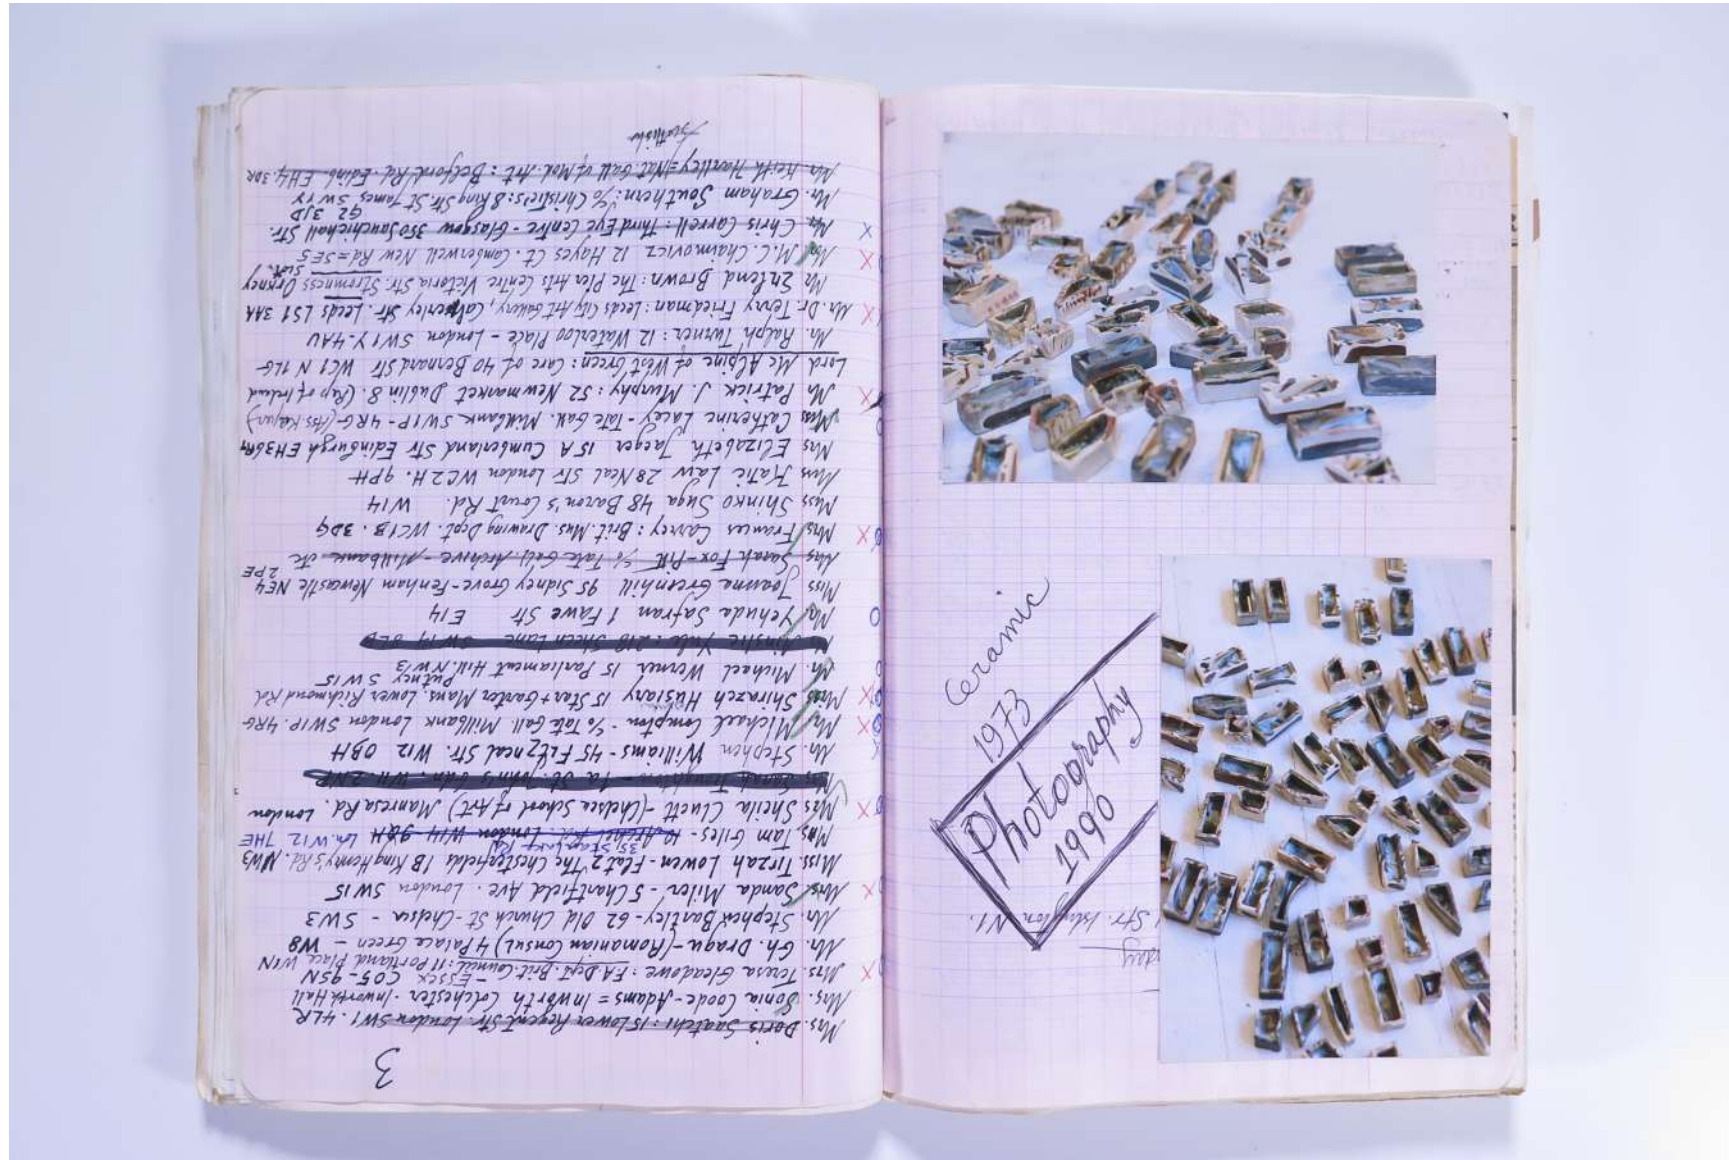 3
Mrs. Doris Saatchi: 15 Lower Regent Str. London SW1. 4LR
Mrs. Sonia Coode-Adams = Inworth Colchester - Inworth Hall
- Essex CO5-9SN
Mrs. Teresa Gleadowe: F.A. Dept. Brit. Council: 11 Portland Place W1N
Mr. Gh. Dragu - (Romanian Consul) 4 Palace Green - W8
Mr. Stephen Bartley - 62 Old Church St - Chelsea - SW3
Mrs. Sanda Miller - 5 Chartfield Ave. London SW15
Miss. Tirzah Lowen - Flat 2 The Chesterfields 1B King Henry's Rd. NW3
Mrs. Tam Giles - London W14 9BH Lon. W12 THE
Mrs Sheila Clucett - (Chelsea School of Art) Manresa Rd. London
Mr. Stephen Williams - 45 Str. W12 0BH
Mr Michael Compton - c/o Tate Gall Millbank London SW1P. 4RG
Miss Shirazeh 15 Star + Garter Mans. Lower Richmond Rd
Putney SW15
Mr. Michael Werner 15 Parliament Hill. NW3
Mr Yehuda Safran 1 Fawe Str E14
Miss Joanna Greenhill 95 Sidney Grove - Fenham Newcastle NE4
2PE
Mrs Sarah Fox-Pitt c/o Tate Gall Archive - Millbank
Mrs Frances Carey: Brit. Mus. Drawing Dept. WC1B. 3DG
Miss Shinko Suga 48 Baron's Court Rd. W14
Miss Katie Law 28 Neal Str London WC2.H. 9PH
Mrs Elizabeth Jaeger 15 A Cumberland Str Edinburgh EH3
Miss Catherine Lacey - Tate Gall. Millbank SW1P-4RG
Mr Patrick J. Murphy: 52 Newmarket Dublin 8. (Rep of Ireland
Lord Mc Alpine of West Green: Care of 40 Bernard Str WC1 N 1LG
Mr. Ralph Turner: 12 Waterloo Place - London SW1Y-4AU
Mr. Dr. Terry Friedman: Leeds City Art Gallery, Calverley Str. Leeds LS1 3AA
Mr Erlend Brown: The Pier Arts Centre Victoria Str Stromness Orkney
M.C. Chaimovicz 12 Hayes Ct. Camberwell New Rd = SE5
Mr Chris Carrell: Third Eye Centre - Glasgow 350 Sauchiehall Str.
G2 3JD
Mr. Graham Southern: c/o Christie's: 8 King Str. St James SW1Y
Mr Keith Hartley = Nat. Gall of Mod. Art: Belford Rd. Edinb. EH4. 3DR
Ceramic
1973
Photography
1990
Str. Islington N1.